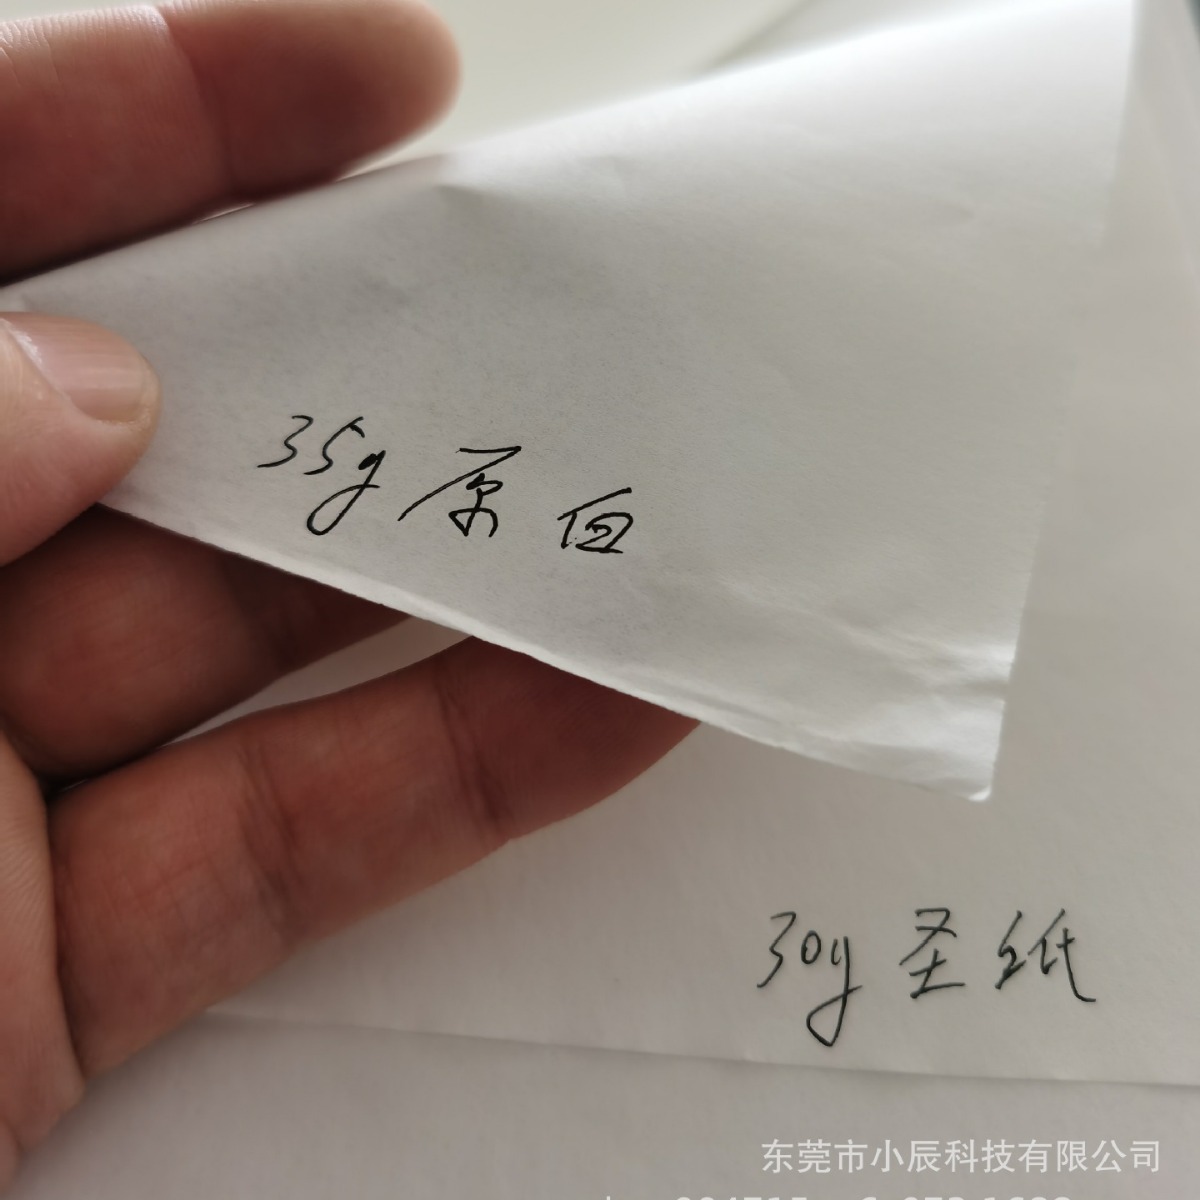 35g 原白
30g 圣纸
东莞市小辰科技有限公司